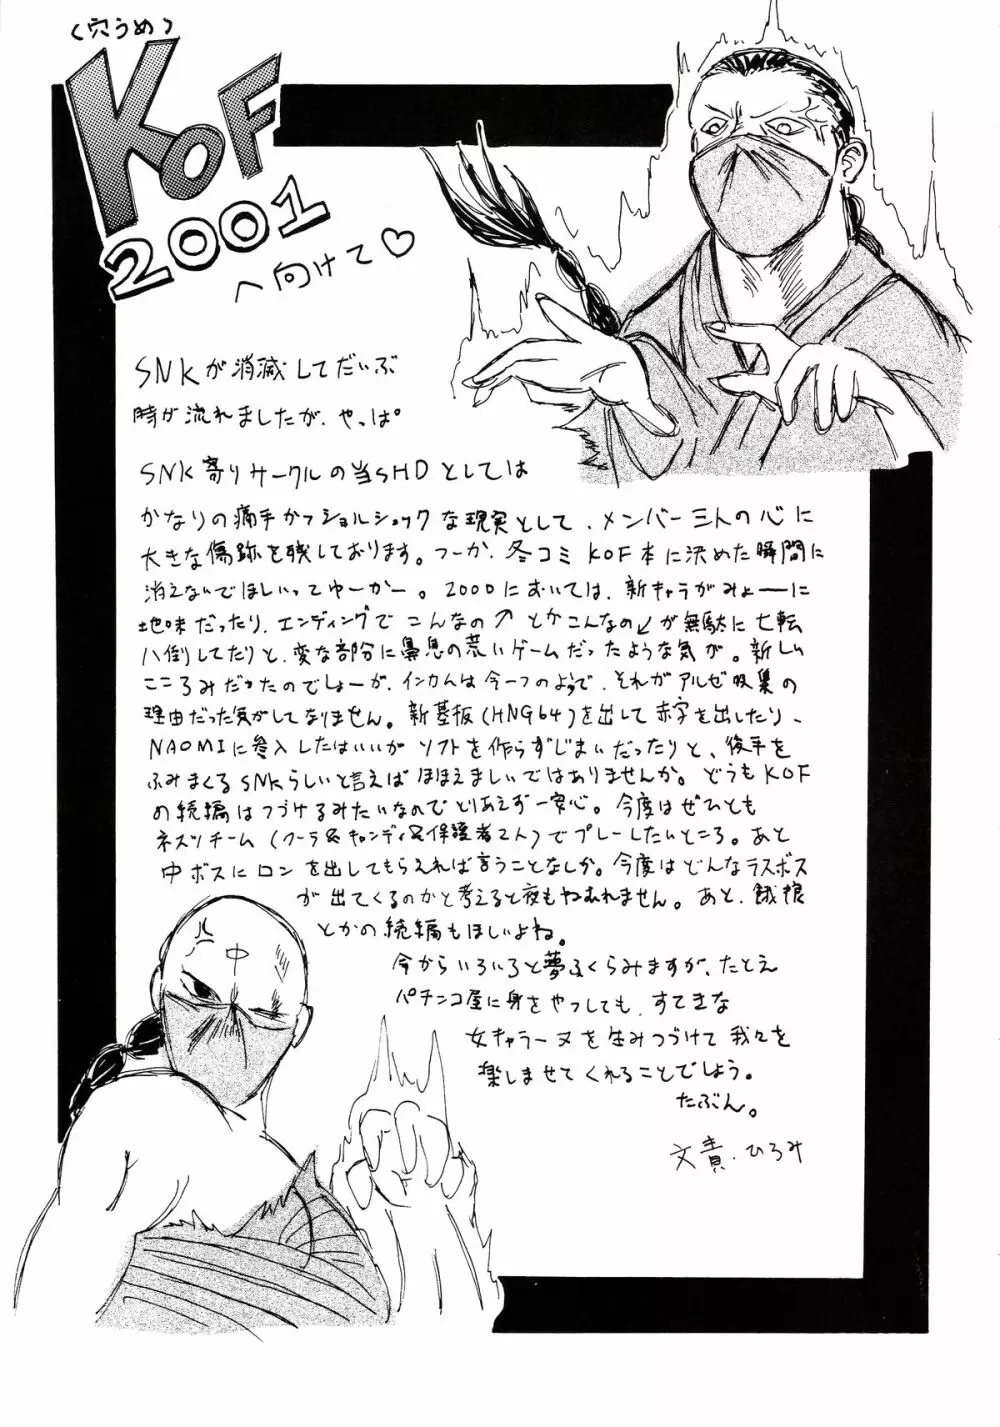 (穴うめ)
KOF
2001
へ向けて♡
SNKが消滅してだいぶ
時が流れましたが、やっぱ。
SNK寄りサークルの当SHDとしては
かなりの痛手かつショルショックな現実として、メンバー三人の心に
大きな傷跡を残しております。つーか、冬コミKOF本に決めた瞬間に
消えないでほしいってゆーかー。2000においては、新キャラがみょーーに
地味だったり、エンディングでこんなの↗とかこんなの↙が無駄に七転
八倒してたりと、変な部分に鼻息の荒いゲームだったような気が。新しい
こころみだったのでしょーが、インカムは今一つのようで、それがアルゼ吸集の
理由だった気がしてなりません。新基板(HNG64)を出して赤字を出したり、
NAOMIに参入したはいいがソフトを作らずじまいだったりと、後手を
ふみまくるSNKらしいと言えばほほえましいではありませんか。どうもKOF
の続編はつづけるみたいなのでとりあえず一安心。今度はぜひとも
ネスツチーム(クーラ&キャンディ&保護者2人)でプレーしたいところ。あと
中ボスにロンを出してもらえれば言うことなしか。今度はどんなラスボス
が出てくるのかと考えると夜もねむれません。あと、餓狼
とかの続編もほしいよね。
今からいろいろと夢ふくらみますが、たとえ
パチンコ屋に身をやつしても、すてきな
女キャラーヌを生みつづけて我々を
楽しませてくれることでしょう。
たぶん。
文責・ひろみ
中